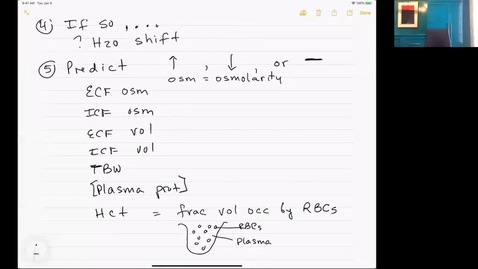 9:41 AM Tue Jan 6
④ If so , ....
? H20 shift
⑤ Predict ↑ , ↓ , or —
osm = osmolarity
ECF osm
ICF osm
ECF vol
ICF vol
TBW
[Plasma prot]
Hct = frac vol occ by RBCs
RBCs
Plasma